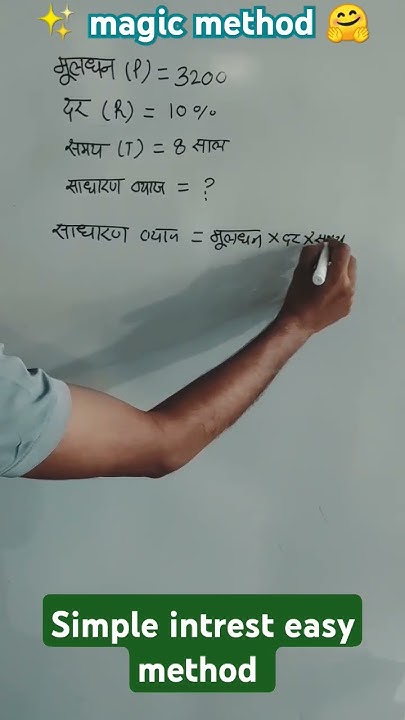 ✨ magic method 🤗
मूलधन (P) = 3200
दर (R) = 10%
समय (T) = 8 साल
साधारण ब्याज = ?
साधारण ब्याज = मूलधन × दर ×
Simple intrest easy
method